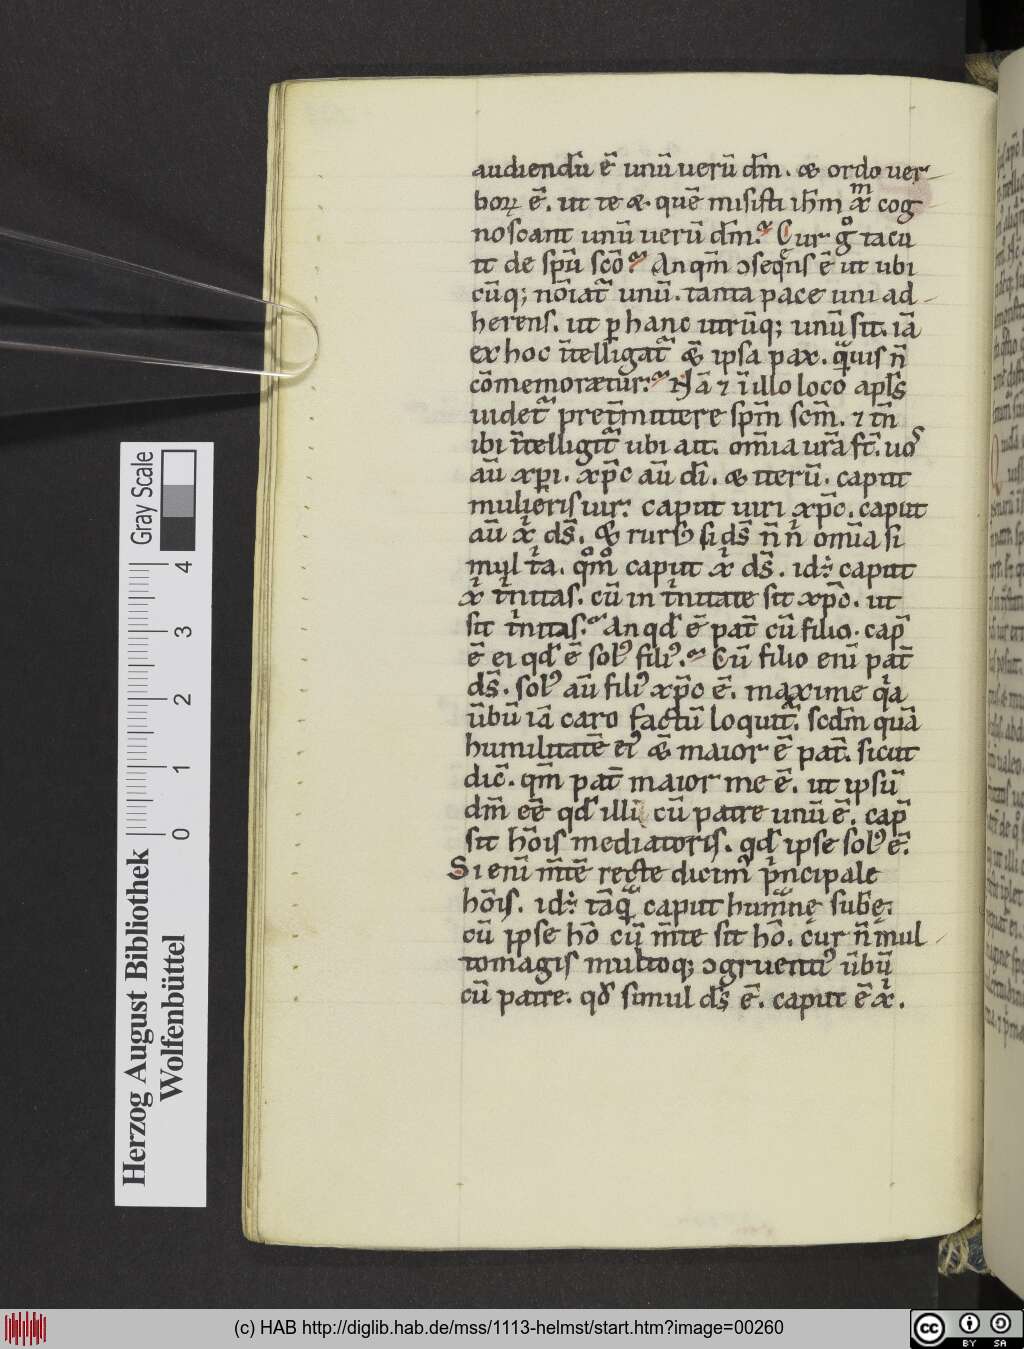 audiendū ē unū uerū dm̄. & ordo uer
borꝝ ē. ut te &. quē misisti ihm̄ xp̄m cog
noscant unū uerū dm̄. Cur gͦ tacu
it de spū scō? An qm̄ ↄseq̄ns ē ut ubi
cūq; nōiat᷑ unū. tanta pace uni ad
herens. ut ꝑ hanc utrūq; unū sit. iā
ex hoc ītelligat᷑ &̄ ipsa pax. q̄uis n̄
cōmemoretur? Nā ⁊ ī illo loco apl̄s
uidet᷑ pret͞mittere spm̄ scm̄. ⁊ tn̄
ibi ītelligit᷑ ubi ait. om̄ia ur̄a st̄. uos
aū xp̄i. xp̄c aū dī. & iterū. caput
mulieris uir. caput uiri xp̄c. caput
aū xp̄i ds̄. &̄ rursꝰ si ds̄ n̄ n̄ om̄ia si
mul tͥa. qͦmͦ caput xp̄i ds̄. id: caput
xp̄i tͥnitas. cū in tͥnitate sit xp̄c. ut
sit tͥnitas. An qd̄ ē pat̄ cū filio. cap̄
ē ei qd̄ ē solꝰ filiꝰ. Cū filio enī pat̄
ds̄. solꝰ aū filiꝰ xp̄c ē. maxime qͥa
ūbū iā caro factū loquit᷑. scdm̄ quā
humilitatē eiꝰ &̄ maior ē pat̄. sicut
dic̄. qm̄ pat̄ maior me ē. ut ipsū
dm̄ eē qd̄ illi cū patre unū ē. cap̄
sit hōis mediatoris. qd̄ ipse solꝰ ē.
Si enī m̄tē recte dicimꝰ pͥncipale
hōis. id: tāq̄ caput humane sub̄e.
cū ipse hō cū m̄te sit hō. cur n̄ mul
tomagis multoq; ↄgruentiꝰ ūbū
cū patre. qd̄ simul ds̄ ē. caput ē xp̄i.
Gray Scale
4
3
2
1
0
Herzog August Bibliothek
Wolfenbüttel
(c) HAB http://diglib.hab.de/mss/1113-helmst/start.htm?image=00260
cc
BY SA